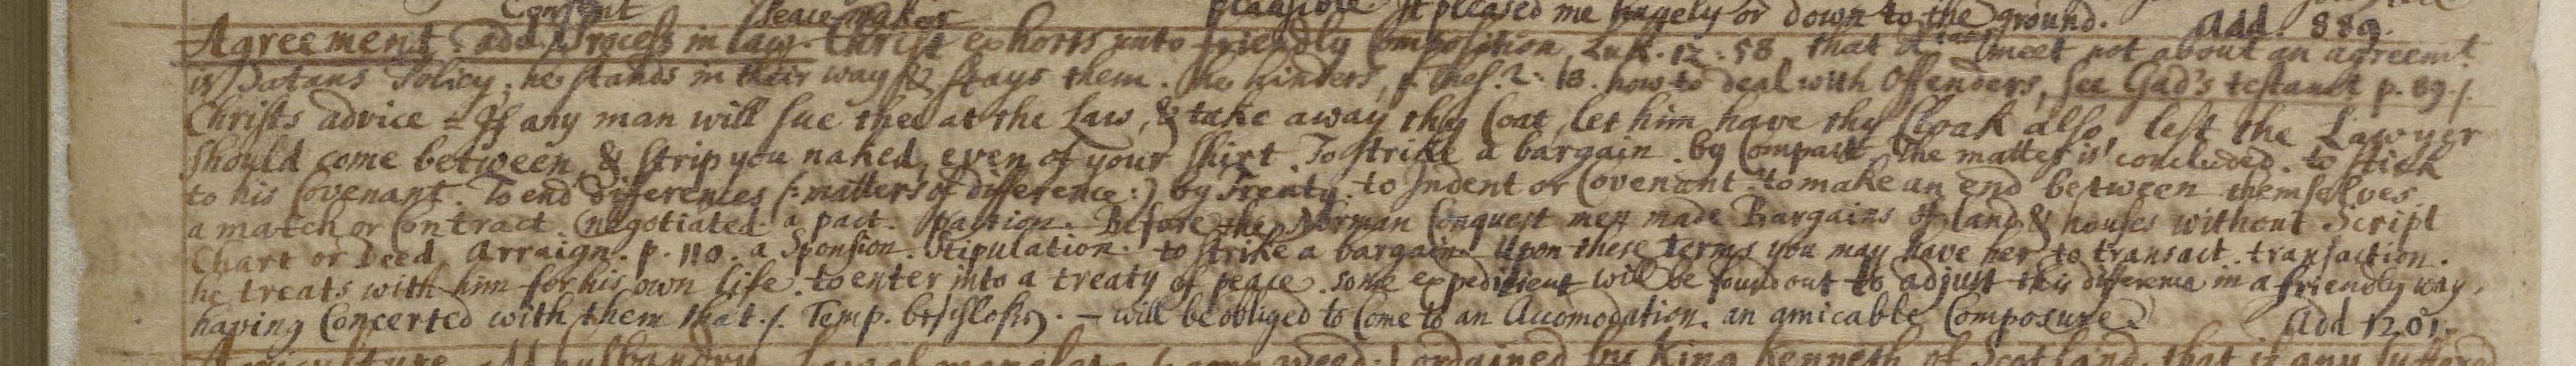 Consent Peacemaker plausible. It pleased me hugely or down to the ground. Add. 889.
Agreement. add Process in law. Christ exhorts unto friendly Composition, Luk. 12: 58, that meet not about an agreemt.
is Satans Policy, he stands in their way & stays them. he hinders, 1 Thes. 2: 18. how to deal with Offenders, see Gad's testamt p. 89./.
Christs advice = If any man will sue thee at the Law, & take away thy Coat, let him have thy Cloak also, lest the Lawyer
should come between, & strip you naked, even of your shirt. To strike a bargain. by Compact. The matter is concluded. to stick
to his Covenant. To end differences (: matters of difference :) by Treaty. to Indent or Covenant. to make an end between themselves
a match or Contract. negotiated. a pact. paction. Before the Norman Conquest men made Bargains of land & houses without Script
Chart or Deed. Arraign. p. 110. a Sponsion. Stipulation. to strike a bargain. Upon these terms you may have her. to transact. transaction.
he treats with him for his own life. to enter into a treaty of peace. some expedient will be found out to adjust this difference in a friendly way.
having Concerted with them that./. Temp. — will be obliged to Come to an Accomodation. an amicable Composure. Add 1201.
Agriculture. add husbandry. ordained by King Kenneth of Scotland, that if any suffered